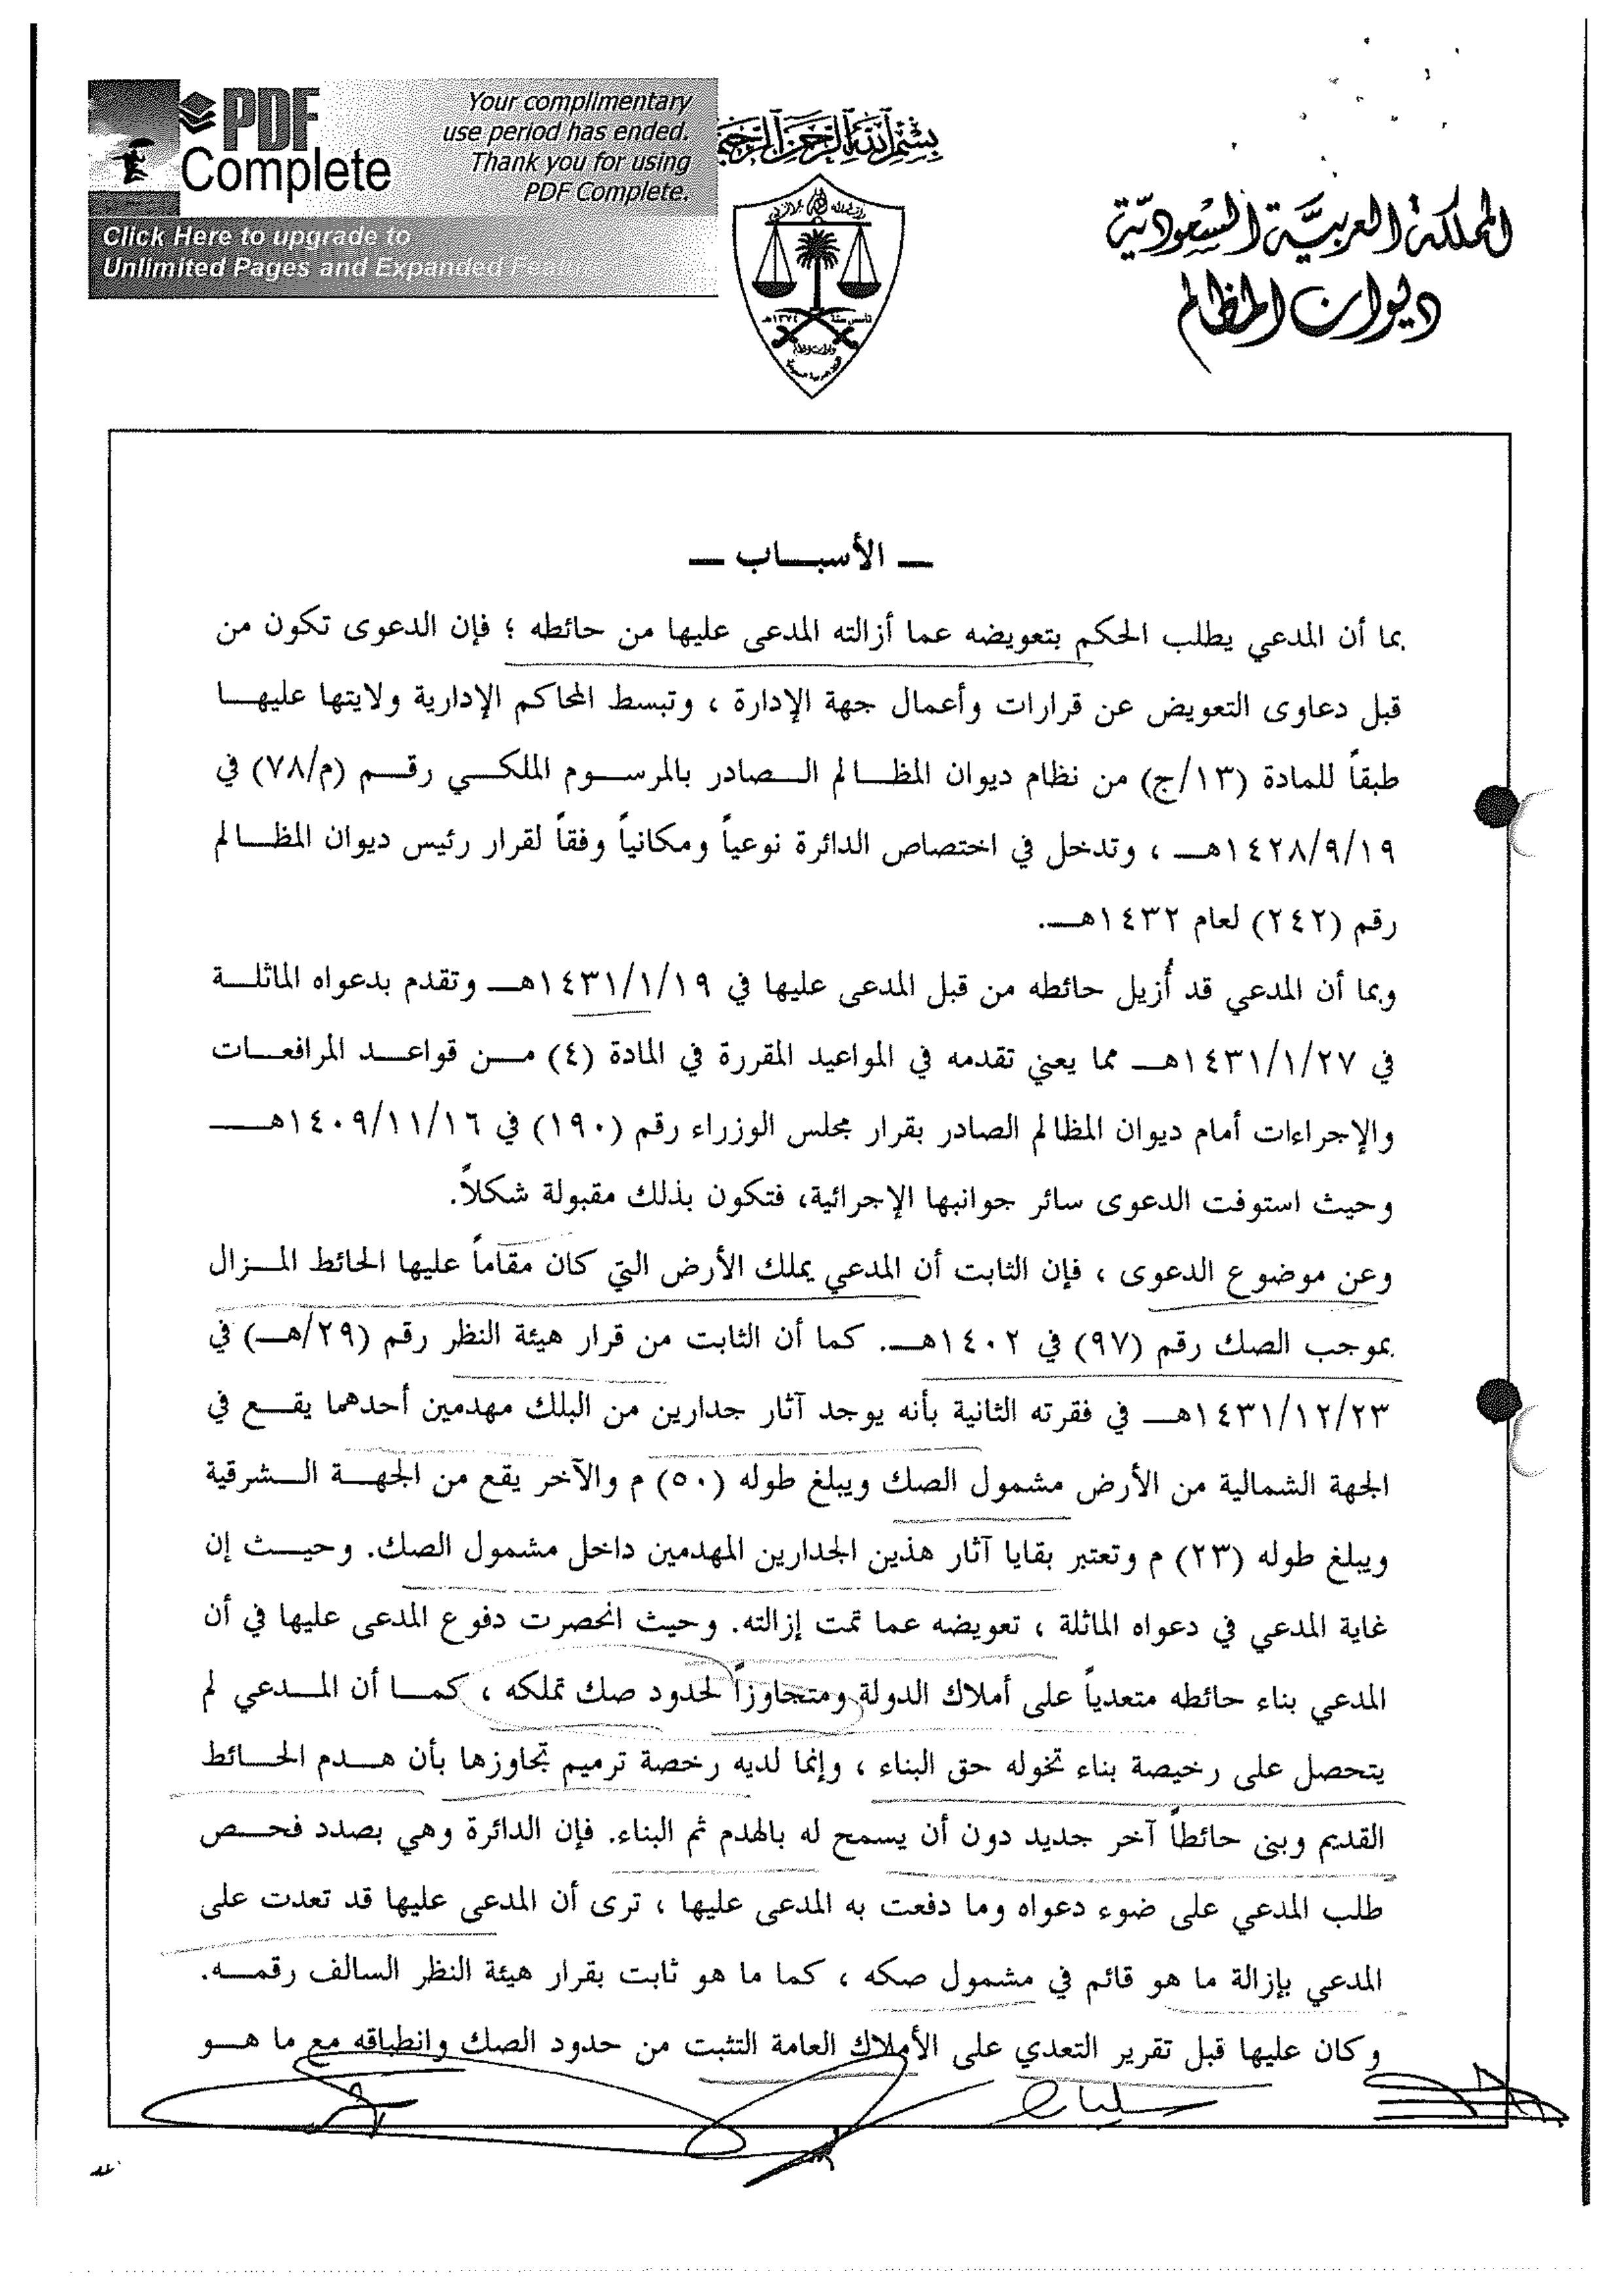 PDF Complete
Your complimentary
use period has ended.
Thank you for using
PDF Complete.
Click Here to upgrade to
Unlimited Pages and Expanded Features
بسم الله الرحمن الرحيم
المملكة العربية السعودية
ديوان المظالم
ــ الأسبـــاب ــ
بما أن المدعي يطلب الحكم بتعويضه عما أزالته المدعى عليها من حائطه ؛ فإن الدعوى تكون من
قبل دعاوى التعويض عن قرارات وأعمال جهة الإدارة ، وتبسط المحاكم الإدارية ولايتها عليهــا
طبقاً للمادة (١٣/ج) من نظام ديوان المظــالم الــصادر بالمرســوم الملكــي رقــم (م/٧٨) في
١٤٢٨/٩/١٩هــ ، وتدخل في اختصاص الدائرة نوعياً ومكانياً وفقاً لقرار رئيس ديوان المظــالم
رقم (٢٤٢) لعام ١٤٣٢هــ.
وبما أن المدعي قد أُزيل حائطه من قبل المدعى عليها في ١٤٣١/١/١٩هــ وتقدم بدعواه الماثلــة
في ١٤٣١/١/٢٧هــ مما يعني تقدمه في المواعيد المقررة في المادة (٤) مــن قواعــد المرافعــات
والإجراءات أمام ديوان المظالم الصادر بقرار مجلس الوزراء رقم (١٩٠) في ١٤٠٩/١١/١٦هــ
وحيث استوفت الدعوى سائر جوانبها الإجرائية، فتكون بذلك مقبولة شكلاً.
وعن موضوع الدعوى ، فإن الثابت أن المدعي يملك الأرض التي كان مقاماً عليها الحائط المــزال
بموجب الصك رقم (٩٧) في ١٤٠٢هــ. كما أن الثابت من قرار هيئة النظر رقم (٢٩/هــ) في
١٤٣١/١٢/٢٣هــ في فقرته الثانية بأنه يوجد آثار جدارين من البلك مهدمين أحدهما يقــع في
الجهة الشمالية من الأرض مشمول الصك ويبلغ طوله (٥٠) م والآخر يقع من الجهــة الــشرقية
ويبلغ طوله (٢٣) م وتعتبر بقايا آثار هذين الجدارين المهدمين داخل مشمول الصك. وحيــث إن
غاية المدعي في دعواه الماثلة ، تعويضه عما تمت إزالته. وحيث انحصرت دفوع المدعى عليها في أن
المدعي بناء حائطه متعدياً على أملاك الدولة ومتجاوزاً لحدود صك تملكه ، كمــا أن المــدعي لم
يتحصل على رخيصة بناء تخوله حق البناء ، وإنما لديه رخصة ترميم تجاوزها بأن هــدم الحــائط
القديم وبنى حائطاً آخر جديد دون أن يسمح له بالهدم ثم البناء. فإن الدائرة وهي بصدد فحــص
طلب المدعي على ضوء دعواه وما دفعت به المدعى عليها ، ترى أن المدعى عليها قد تعدت على
المدعي بإزالة ما هو قائم في مشمول صكه ، كما ما هو ثابت بقرار هيئة النظر السالف رقمــه.
وكان عليها قبل تقرير التعدي على الأملاك العامة التثبت من حدود الصك وانطباقه مع ما هــو